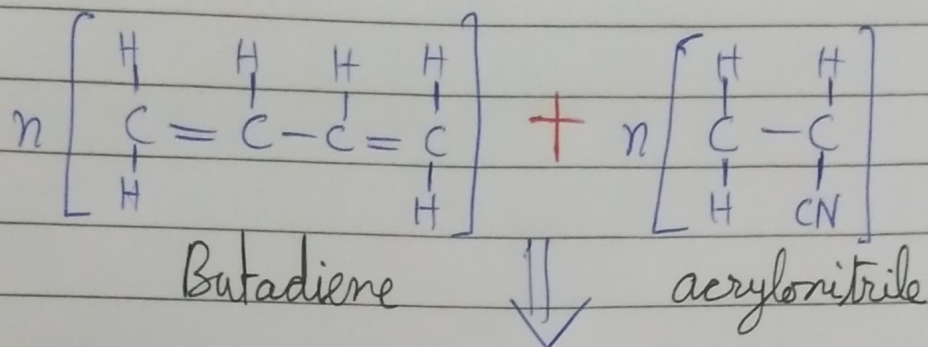 H H H H H H
n [ C = C - C = C ] + n [ C - C ]
H H H CN
Butadiene acrylonitrile